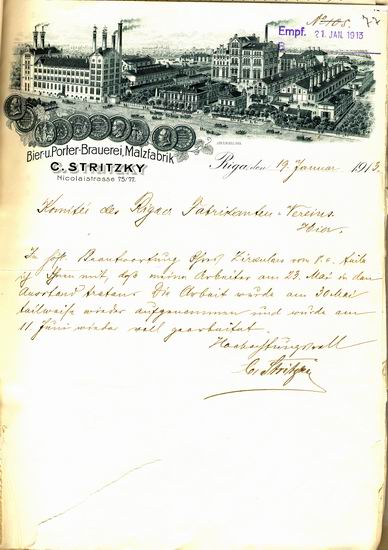 No 105.
Empf. 21. JAN. 1913
B
Bier- u. Porter-Brauerei, Malzfabrik
C. STRITZKY
Nicolaistrasse 75/77.
Riga, den 19. Januar 1913.
Komitée des Rigaer Fabrikanten-Vereins
Hier.
In höfl. Beantwortung Ihres Zirkulars von teile
ich Ihnen mit, daß meine Arbeiter am 23. Mai in den
Ausstand traten. Die Arbeit wurde am 30 Mai
teilweise wieder aufgenommen und wurde am
11. Juni wieder voll gearbeitet.
Hochachtungsvoll
C. Stritzky